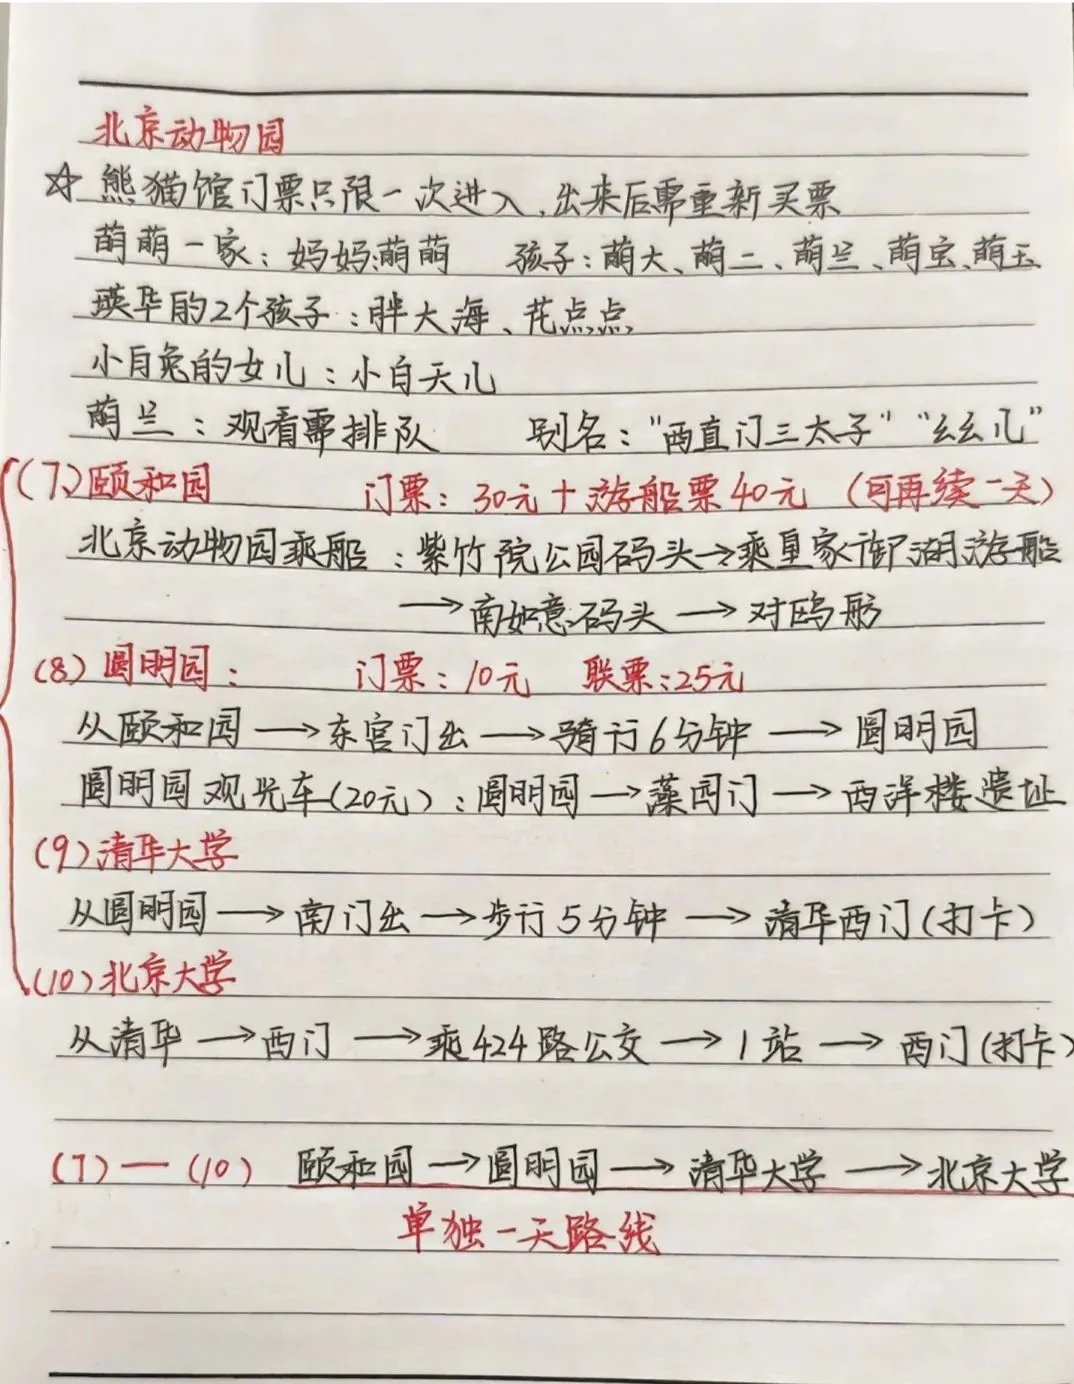 北京动物园
☆ 熊猫馆门票只限一次进入,出来后需重新买票
萌萌一家:妈妈:萌萌 孩子:萌大、萌二、萌兰、萌宝、萌玉
瑛华的2个孩子:胖大海、花点点
小白兔的女儿:小白天儿
萌兰:观看需排队 别名:“西直门三太子”“幺幺儿”
(7)颐和园 门票:30元+游船票40元 (可再续一天)
北京动物园乘船:紫竹院公园码头→乘皇家御湖游船
→南如意码头→对鸥舫
(8)圆明园: 门票:10元 联票:25元
从颐和园→东宫门出→骑行6分钟→圆明园
圆明园观光车(20元):圆明园→藻园门→西洋楼遗址
(9)清华大学
从圆明园→南门出→步行5分钟→清华西门(打卡)
(10)北京大学
从清华→西门→乘424路公交→1站→西门(打卡)
(7)—(10) 颐和园→圆明园→清华大学→北京大学
单独一天路线